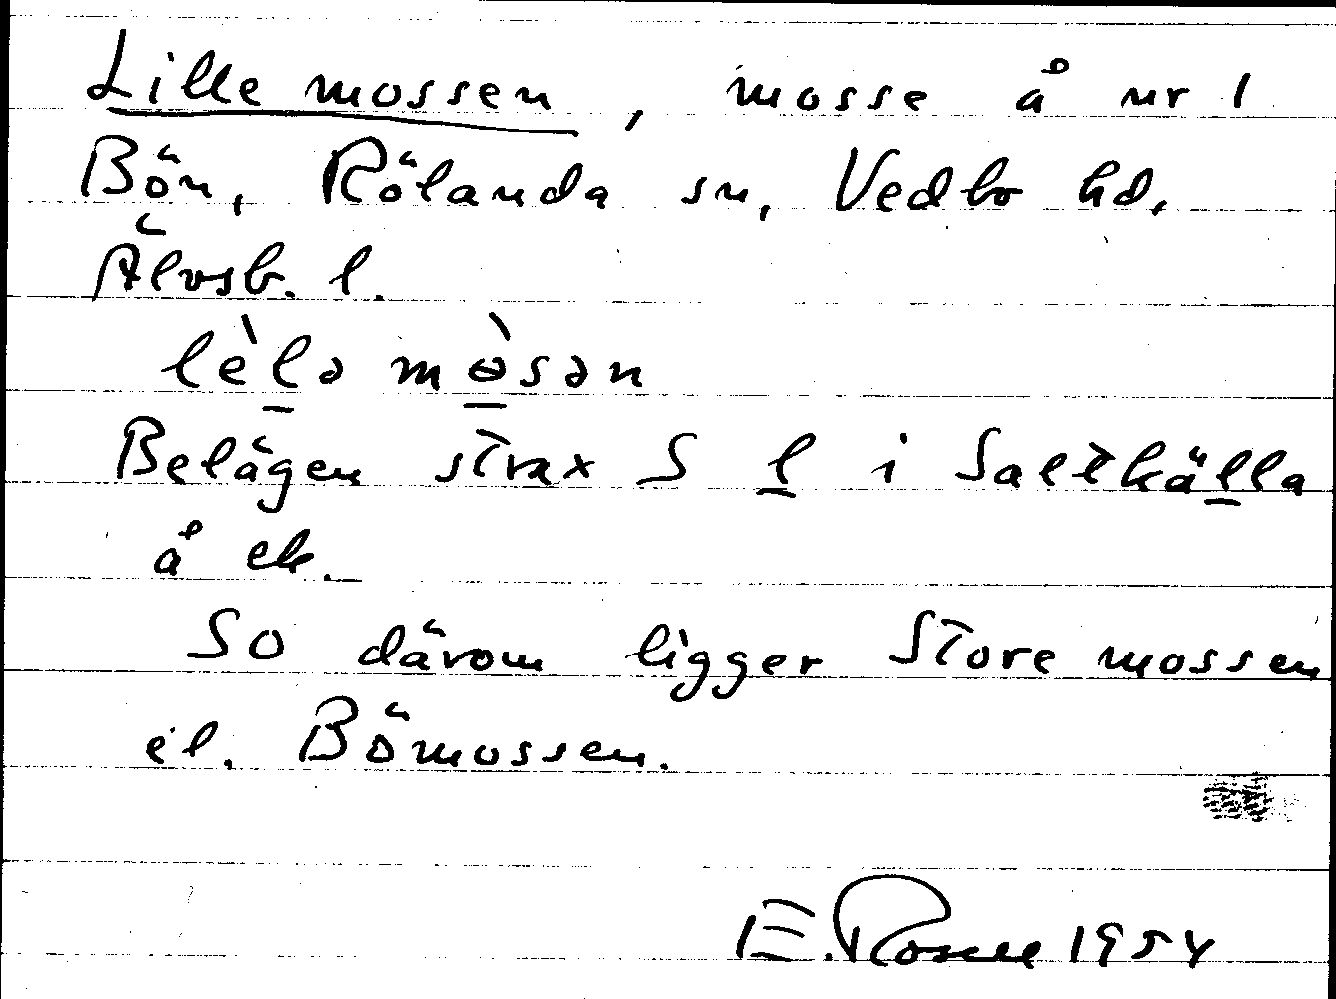 Lille mossen, mosse å nr 1
Bön, Rölanda sn, Vedbo hd,
Älvsb. l.
lèl̠ə mɵ̠̀sən
Belägen strax S l̠ i Saltkäl̠la
å ek.
SO därom ligger Store mossen
el. Bömossen.
E. Rosell 1954